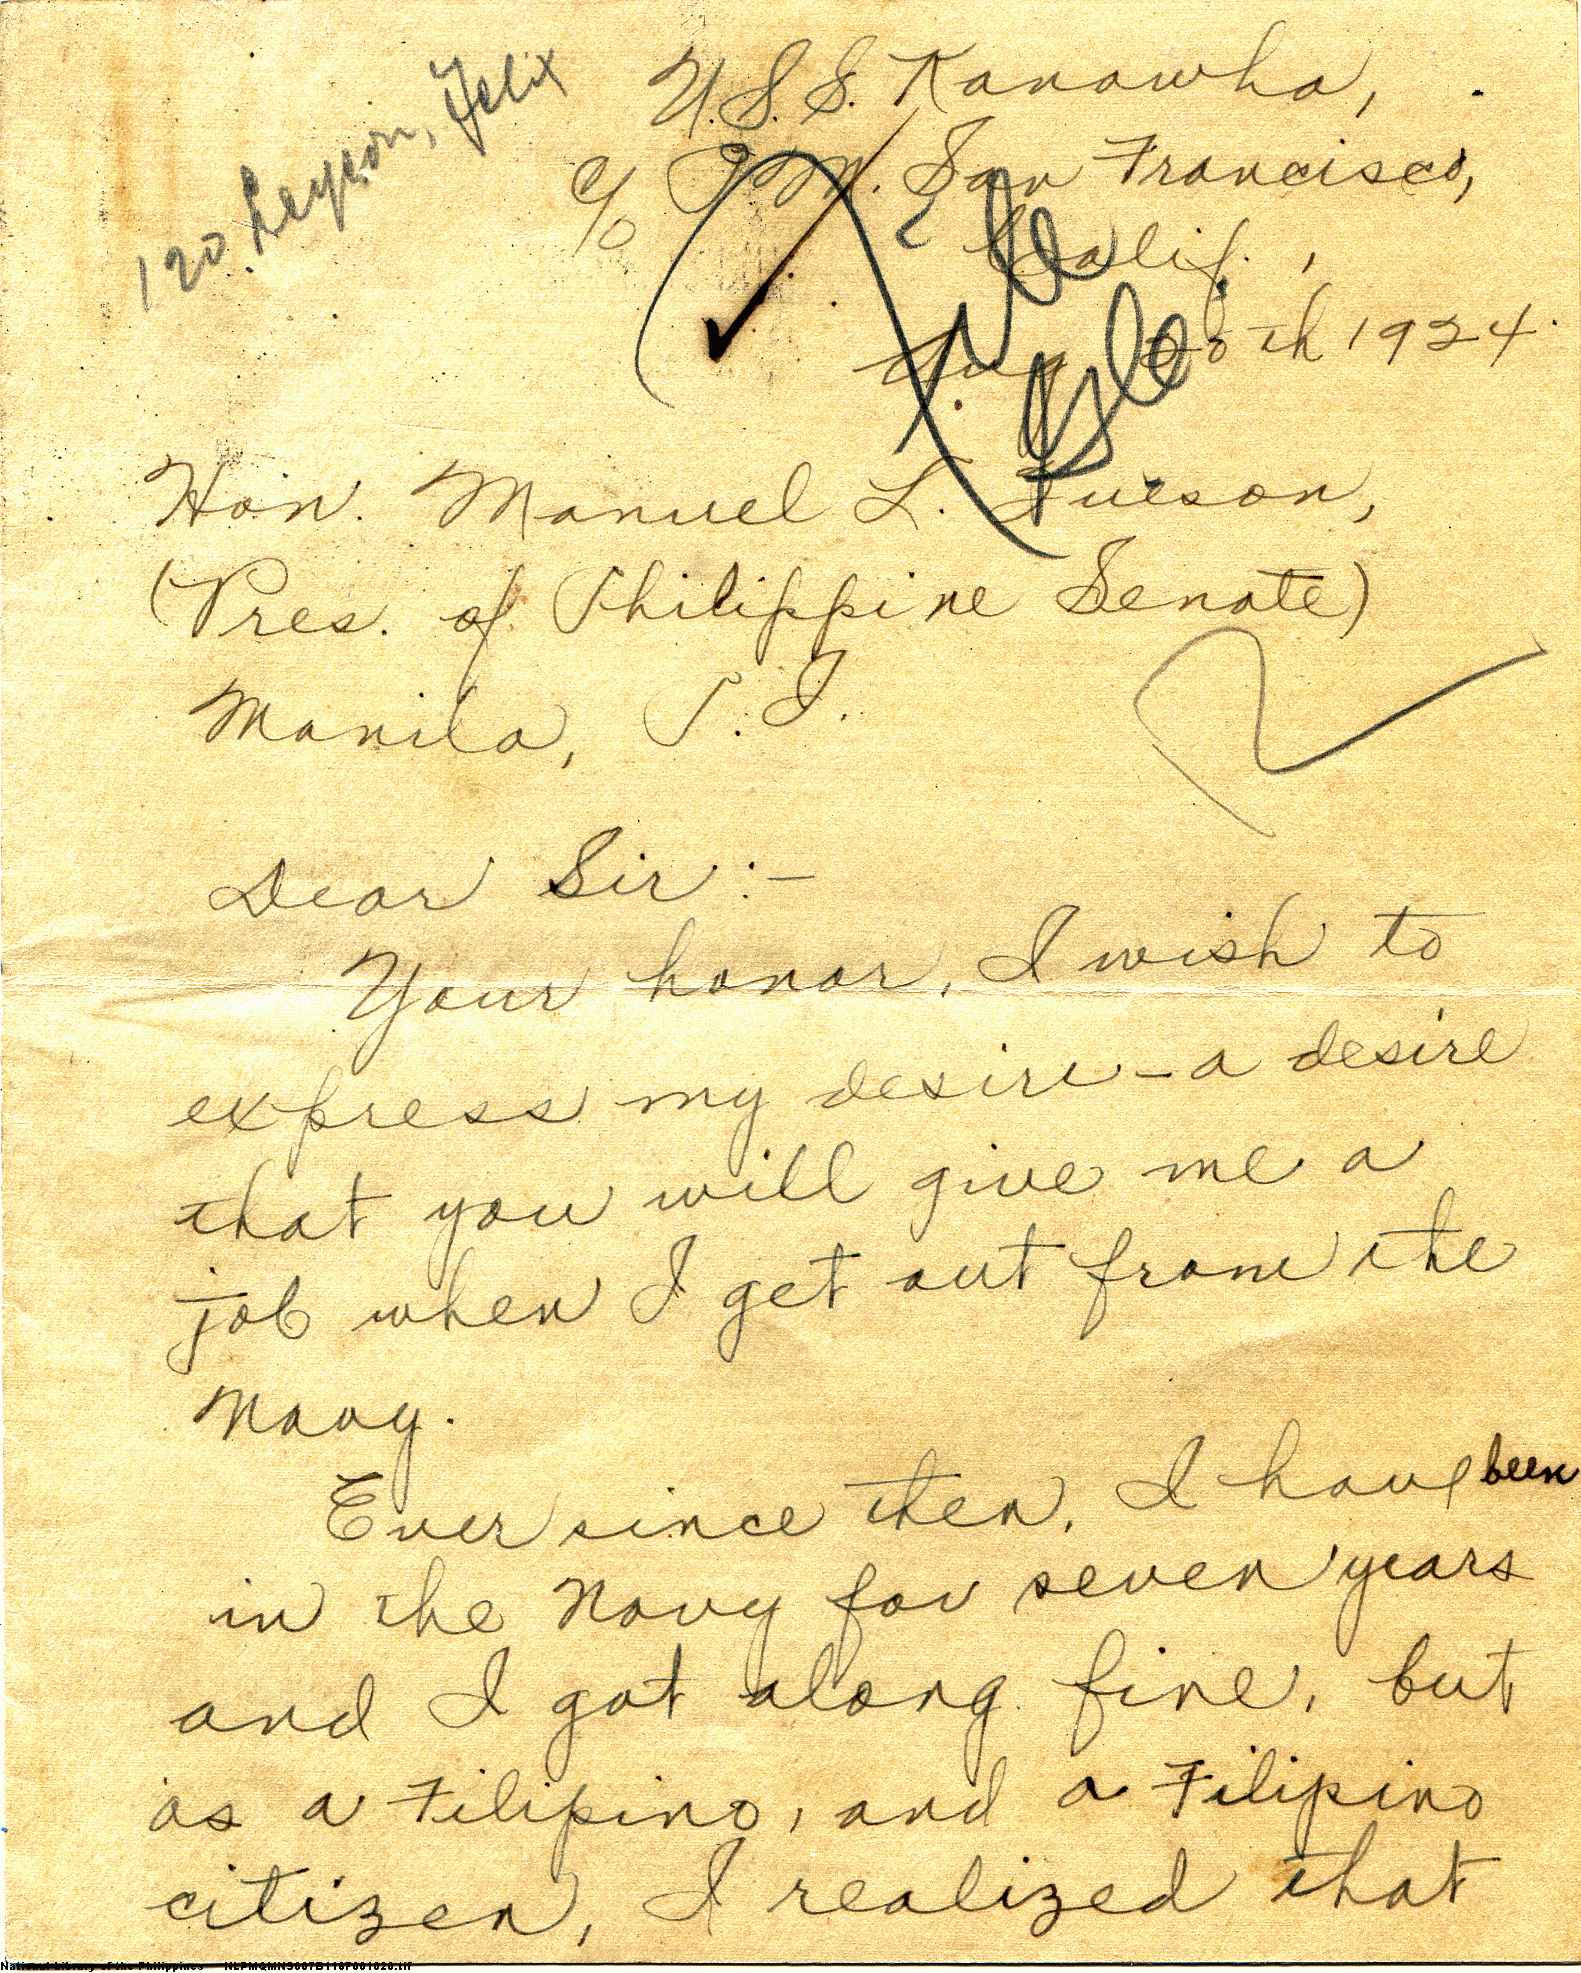 120 Legeon, Felix
U.S.S. Kanawha,
c/o P.M. San Francisco,
Calif.,
File
Aug 20th 1924.
Hon. Manuel L. Queson,
(Pres. of Philippine Senate)
Manila, P.I.
Dear Sir:-
Your honor, I wish to
express my desire - a desire
that you will give me a
job when I get out from the
Navy.
Ever since then, I have been
in the Navy for seven years
and I got along fine, but
as a Filipino, and a Filipino
citizen, I realized that
National Library of the Philippines